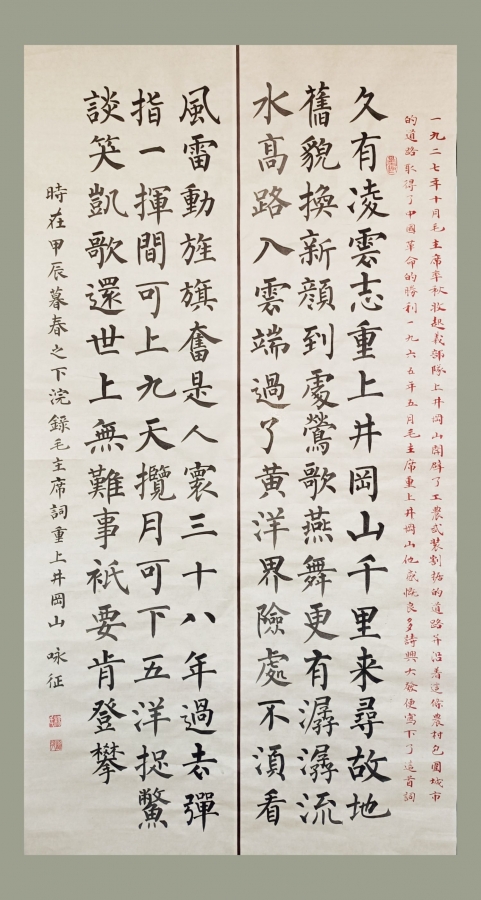 一九二七年十月毛主席率秋收起義部隊上井岡山開辟了工農武裝割據的道路并沿着這條農村包圍城市
的道路取得了中國革命的勝利一九六五年五月毛主席重上井岡山他感慨良多詩興大發便寫下了這首詞
久有凌雲志重上井岡山千里来尋故地
舊貌換新顔到處鶯歌燕舞更有潺潺流
水高路入雲端過了黄洋界險處不湏看
風雷動旌旗奮是人寰三十八年過去彈
指一揮間可上九天攬月可下五洋捉鱉
談笑凱歌還世上無難事衹要肯登攀
時在甲辰暮春之下浣錄毛主席詞重上井岡山 咏征